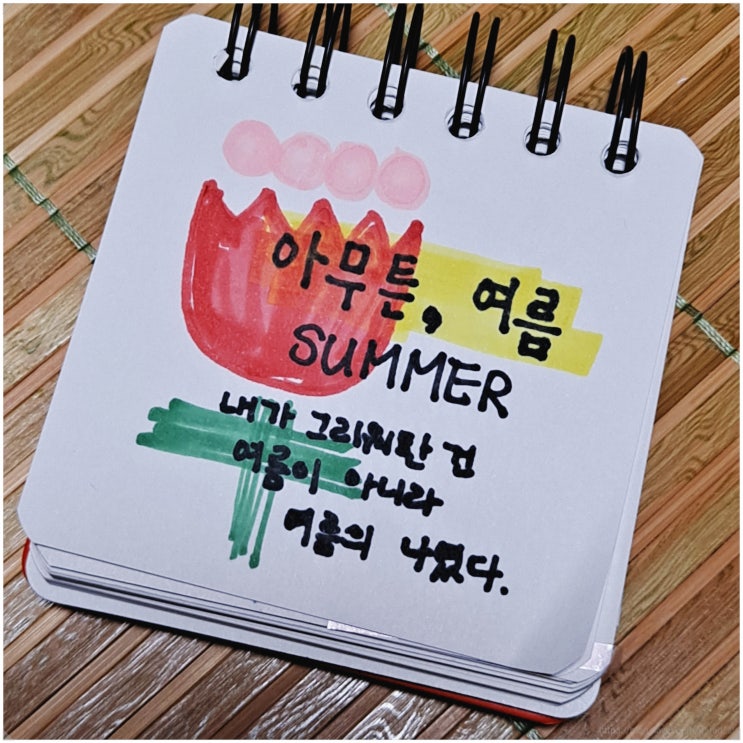 아무튼, 여름
SUMMER
내가 그리워한 건
여름이 아니라
여름의 나였다.